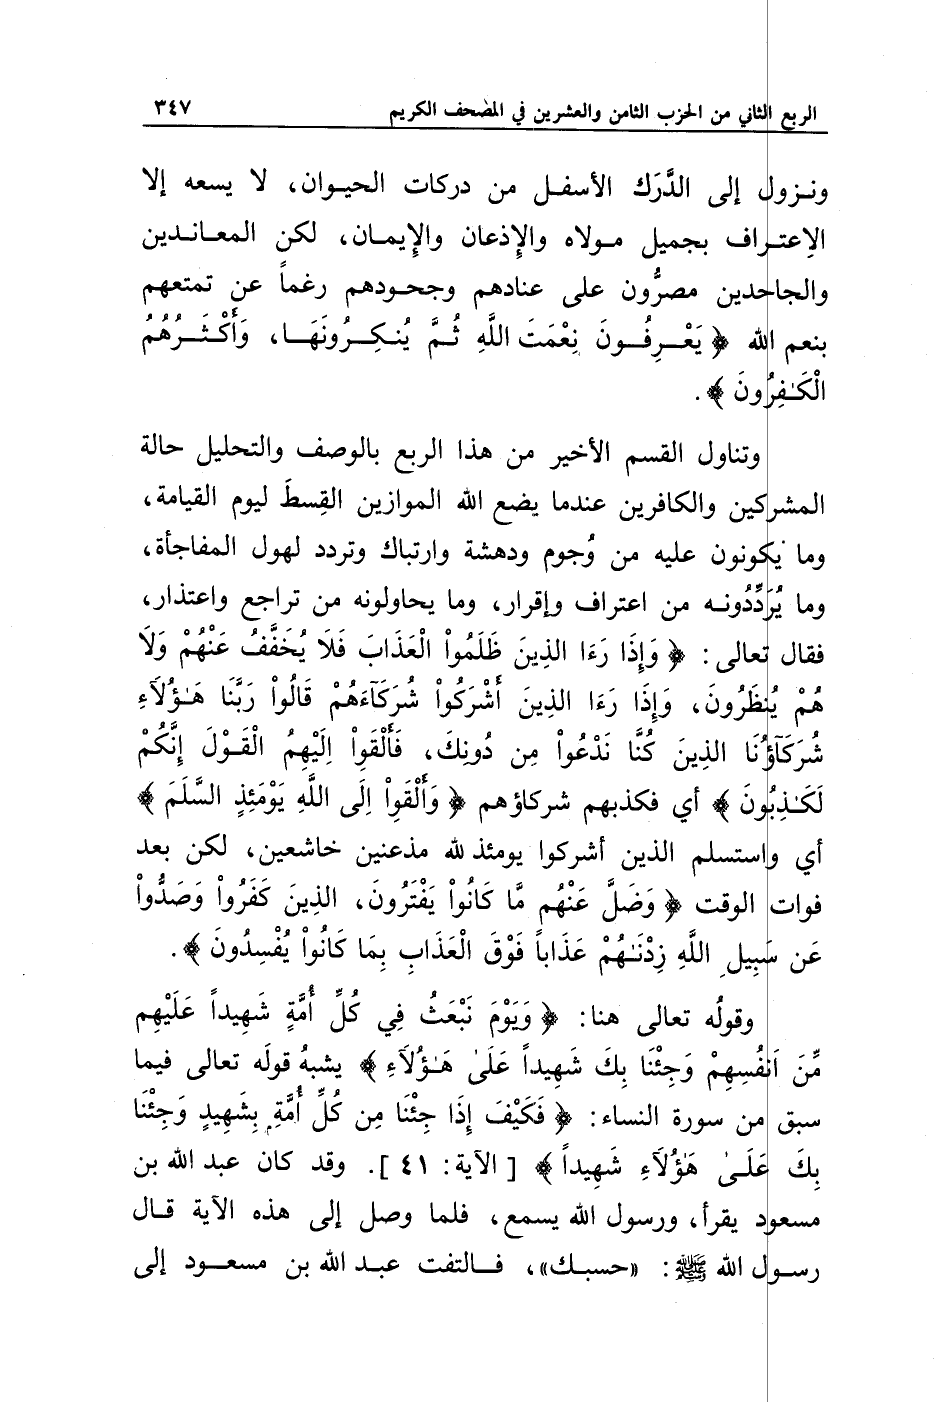 الربع الثاني من الحزب الثامن والعشرين في المصحف الكريم ٣٤٧
ونـزول إلى الدَّرَك الأسفـل من دركات الحيـوان، لا يسعه إلا
الإعتـراف بجميل مـولاه والإذعان والإيمـان، لكن المعـانـدين
والجاحدين مصرُّون على عنادهم وجحودهم رغماً عن تمتعهم
بنعم الله ﴿ يَعْـرِفُـونَ نِعْمَتَ اللَّهِ ثُـمَّ يُنـكِـرُونَهَـا، وَأَكْـثَـرُهُمُ
الْكَـٰفِرُونَ ﴾.
وتناول القسم الأخير من هذا الربع بالوصف والتحليل حالة
المشركين والكافرين عندما يضع الله الموازين القِسطَ ليوم القيامة،
وما يكونون عليه من وُجوم ودهشة وارتباك وتردد لهول المفاجأة،
وما يُرَدِّدُونـه من اعتراف وإقرار، وما يحاولونه من تراجع واعتذار،
فقال تعالى: ﴿ وَإِذَا رَءَا الذِينَ ظَلَمُواْ الْعَذَابَ فَلَا يُخَفَّفُ عَنْهُمْ وَلَا
هُمْ يُنظَرُونَ، وَإِذَا رَءَا الذِينَ أَشْرَكُواْ شُرَكَآءَهُمْ قَالُواْ رَبَّنَا هَـٰؤُلَآءِ
شُرَكَآؤُنَا الذِينَ كُنَّا نَدْعُواْ مِن دُونِكَ، فَأَلْقَواْ اِلَيْهِمُ الْقَـوْلَ إِنَّكُمْ
لَكَـٰذِبُونَ ﴾ أي فكذبهم شركاؤهم ﴿ وَأَلْقَواِ اِلَى اللَّهِ يَوْمَئِذٍ السَّلَمَ ﴾
أي واستسلم الذين أشركوا يومئذ لله مذعنين خاشعين، لكن بعد
فوات الوقت ﴿ وَضَلَّ عَنْهُم مَّا كَانُواْ يَفْتَرُونَ، الذِينَ كَفَرُواْ وَصَدُّواْ
عَن سَبِيلِ اللَّهِ زِدْنَـٰهُمْ عَذَاباً فَوْقَ الْعَذَابِ بِمَا كَانُواْ يُفْسِدُونَ ﴾.
وقولُه تعالى هنا: ﴿ وَيَوْمَ نَبْعَثُ فِي كُلِّ أُمَّةٍ شَهِيداً عَلَيْهِم
مِّنَ اَنفُسِهِمْ وَجِئْنَا بِكَ شَهِيداً عَلَىٰ هَـٰؤُلَآءِ ﴾ يشبهُ قولَه تعالى فيما
سبق من سورة النساء: ﴿ فَكَيْفَ إِذَا جِئْنَا مِن كُلِّ أُمَّةٍ بِشَهِيدٍ وَجِئْنَا
بِكَ عَلَـىٰ هَـٰؤُلَآءِ شَهِيداً ﴾ [ الآية: ٤١ ]. وقد كان عبد الله بن
مسعود يقرأ، ورسول الله يسمع، فلما وصل إلى هذه الآية قـال
رسـول الله ﷺ: «حسبـك»، فـالتفت عبـد الله بن مسعـود إلى